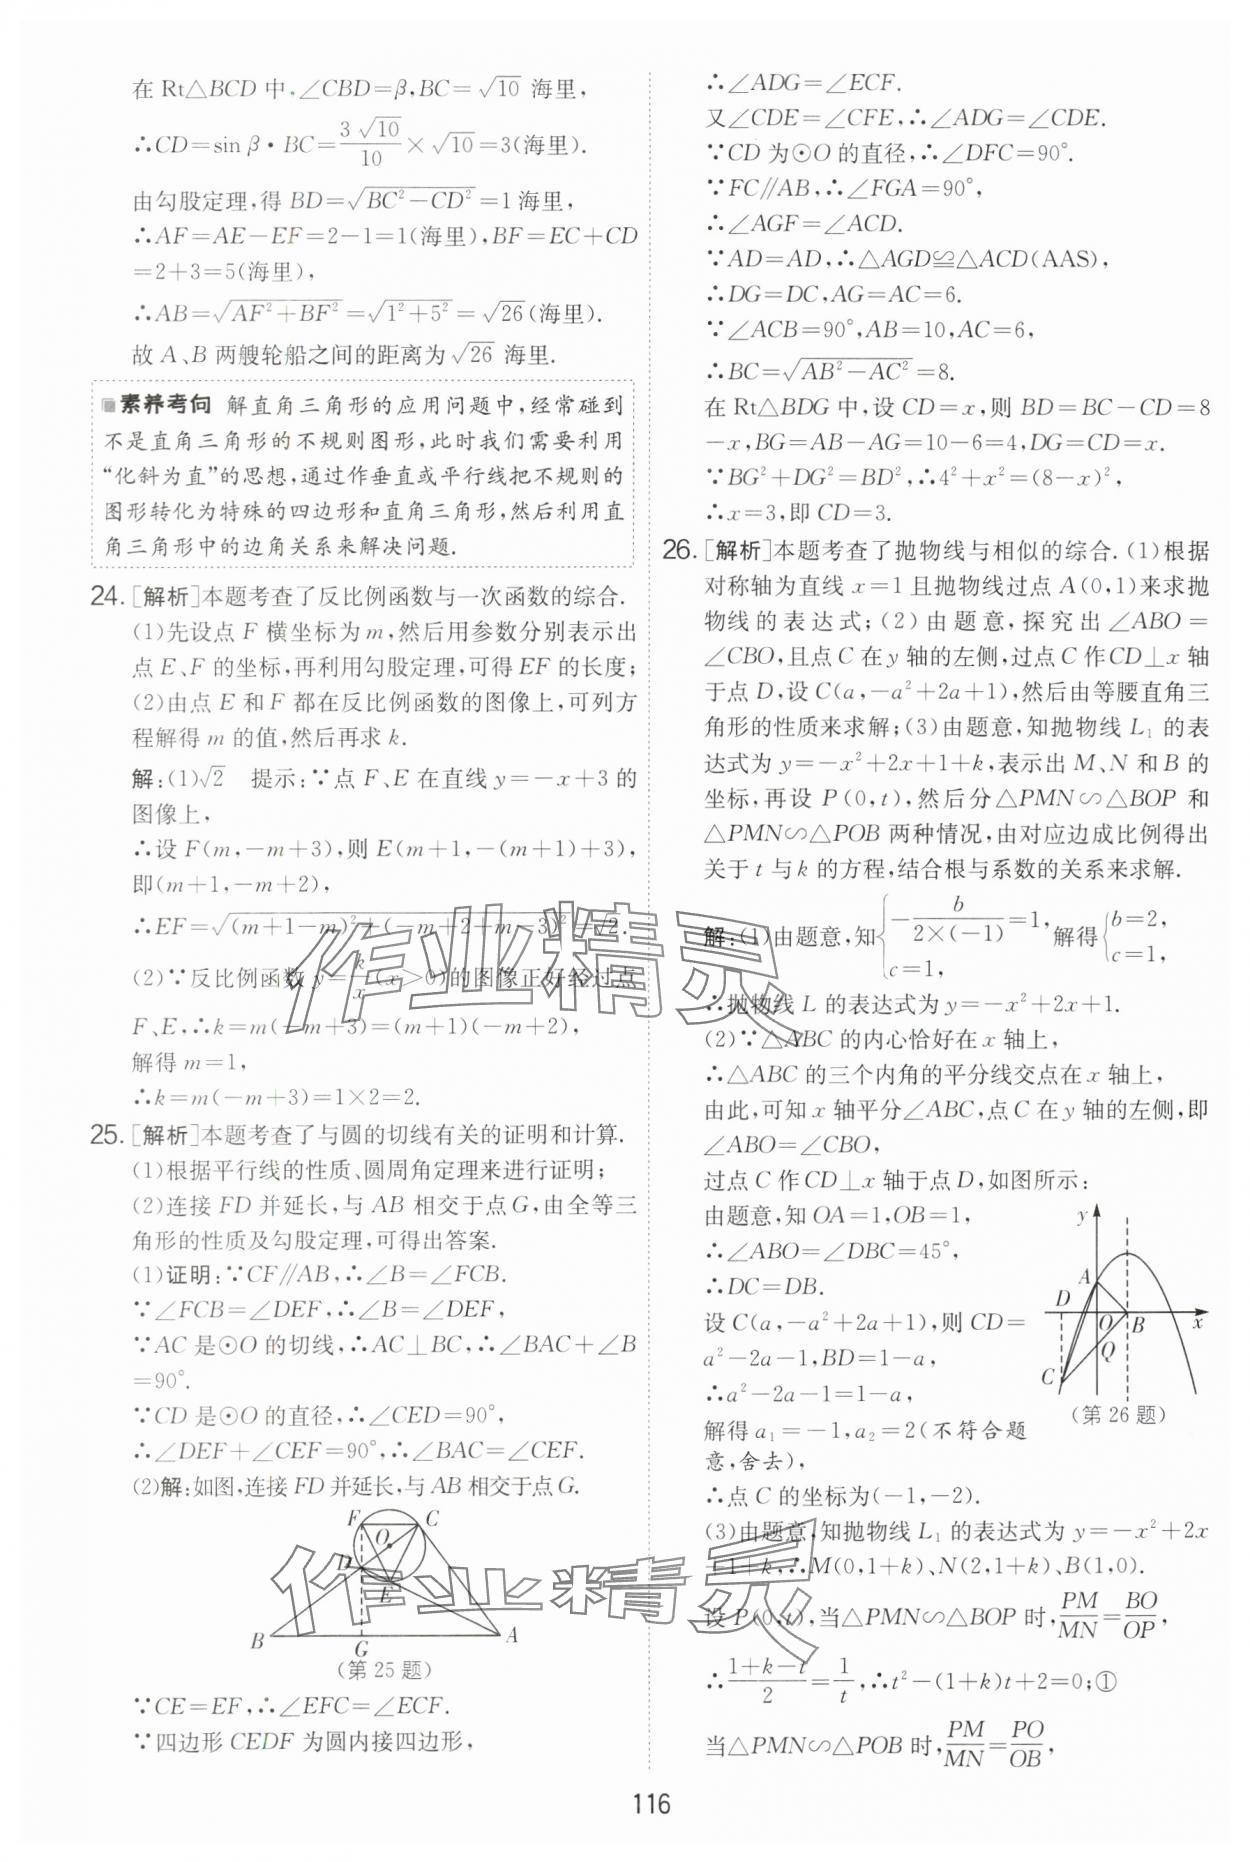 在 Rt△BCD 中,∠CBD=β,BC=√10 海里,
∴CD=sin β·BC=3√10/10×√10=3(海里).
由勾股定理,得 BD=√(BC²-CD²)=1海里,
∴AF=AE-EF=2-1=1(海里),BF=EC+CD
=2+3=5(海里),
∴AB=√(AF²+BF²)=√(1²+5²)=√26(海里).
故 A、B 两艘轮船之间的距离为√26 海里.
素养考向 解直角三角形的应用问题中,经常碰到
不是直角三角形的不规则图形,此时我们需要利用
“化斜为直”的思想,通过作垂直或平行线把不规则的
图形转化为特殊的四边形和直角三角形,然后利用直
角三角形中的边角关系来解决问题.
24.[解析]本题考查了反比例函数与一次函数的综合.
(1)先设点 F 横坐标为 m,然后用参数分别表示出
点 E、F 的坐标,再利用勾股定理,可得 EF 的长度;
(2)由点 E 和 F 都在反比例函数的图像上,可列方
程解得 m 的值,然后再求 k.
解:(1)√2 提示:∵点 F、E 在直线 y=-x+3 的
图像上,
∴设 F(m,-m+3),则 E(m+1,-(m+1)+3),
即(m+1,-m+2),
∴EF=√((m+1-m)²+(-m+2+m-3)²)=√2.
(2)∵反比例函数 y=k/x(x>0)的图像正好经过点
F、E,∴k=m(-m+3)=(m+1)(-m+2),
解得 m=1,
∴k=m(-m+3)=1×2=2.
25.[解析]本题考查了与圆的切线有关的证明和计算.
(1)根据平行线的性质、圆周角定理来进行证明;
(2)连接 FD 并延长,与 AB 相交于点G,由全等三
角形的性质及勾股定理,可得出答案.
(1)证明:∵CF∥AB,∴∠B=∠FCB.
∵∠FCB=∠DEF,∴∠B=∠DEF,
∵AC 是⊙O 的切线,∴AC⊥BC,∴∠BAC+∠B
=90°.
∵CD 是⊙O 的直径,∴∠CED=90°,
∴∠DEF+∠CEF=90°,∴∠BAC=∠CEF.
(2)解:如图,连接 FD 并延长,与 AB 相交于点G.
F
C
O
D
E
B
G
A
(第 25 题)
∵CE=EF,∴∠EFC=∠ECF.
∵四边形 CEDF 为圆内接四边形,
∴∠ADG=∠ECF.
又∠CDE=∠CFE,∴∠ADG=∠CDE.
∵CD 为⊙O 的直径,∴∠DFC=90°.
∵FC∥AB,∴∠FGA=90°,
∴∠AGF=∠ACD.
∵AD=AD,∴△AGD≌△ACD(AAS),
∴DG=DC,AG=AC=6.
∵∠ACB=90°,AB=10,AC=6,
∴BC=√(AB²-AC²)=8.
在 Rt△BDG 中,设 CD=x,则 BD=BC-CD=8
-x,BG=AB-AG=10-6=4,DG=CD=x.
∵BG²+DG²=BD²,∴4²+x²=(8-x)²,
∴x=3,即 CD=3.
26.[解析]本题考查了抛物线与相似的综合.(1)根据
对称轴为直线 x=1 且抛物线过点 A(0,1)来求抛
物线的表达式;(2)由题意,探究出∠ABO=
∠CBO,且点 C 在 y 轴的左侧,过点 C 作CD⊥x 轴
于点 D,设 C(a,-a²+2a+1),然后由等腰直角三
角形的性质来求解;(3)由题意,知抛物线 L₁ 的表
达式为 y=-x²+2x+1+k,表示出 M、N 和 B 的
坐标,再设 P(0,t),然后分△PMN∽△BOP 和
△PMN∽△POB 两种情况,由对应边成比例得出
关于 t 与 k 的方程,结合根与系数的关系来求解.
解:(1)由题意,知{-b/(2×(-1))=1, c=1, 解得{b=2, c=1,
∴抛物线 L 的表达式为 y=-x²+2x+1.
(2)∵△ABC 的内心恰好在 x 轴上,
∴△ABC 的三个内角的平分线交点在 x 轴上,
由此,可知 x 轴平分∠ABC,点 C 在 y 轴的左侧,即
∠ABO=∠CBO,
过点 C 作 CD⊥x 轴于点 D,如图所示:
由题意,知 OA=1,OB=1,
∴∠ABO=∠DBC=45°,
∴DC=DB.
设 C(a,-a²+2a+1),则 CD=
a²-2a-1,BD=1-a,
∴a²-2a-1=1-a,
解得 a₁=-1,a₂=2(不符合题
意,舍去),
y
A
D
O
B
x
Q
C
(第 26 题)
∴点 C 的坐标为(-1,-2).
(3)由题意,知抛物线 L₁ 的表达式为 y=-x²+2x
+1+k,∴M(0,1+k)、N(2,1+k)、B(1,0).
设 P(0,t),当△PMN∽△BOP 时,PM/MN=BO/OP,
∴(1+k-t)/2=1/t,∴t²-(1+k)t+2=0;①
当△PMN∽△POB 时,PM/MN=PO/OB,
116
作业精灵
作业精灵